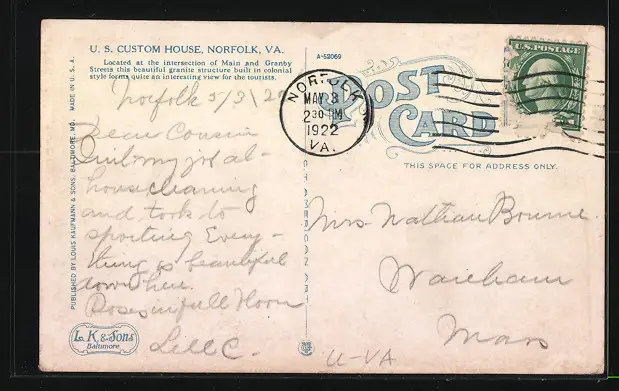 U. S. CUSTOM HOUSE, NORFOLK, VA.
Located at the intersection of Main and Granby
Streets this beautiful granite structure built in colonial
style forms quite an interesting view for the tourists.
A-52069
POST
CARD
THIS SPACE FOR ADDRESS ONLY.
U.S. POSTAGE
NORFOLK
MAY 3
230 PM
1922
VA.
MADE IN U. S. A.
PUBLISHED BY LOUIS KAUFMANN & SONS, BALTIMORE, MD.
Norfolk 5/3/22
Dear Cousin
Quit my job at
housecleaning
and took to
sporting Every-
thing is beautiful
down here.
Roses in full bloom
C.
Mrs. Nathan Bourne.
Wareham
Mass
L. K. & Sons
Baltimore
U-VA